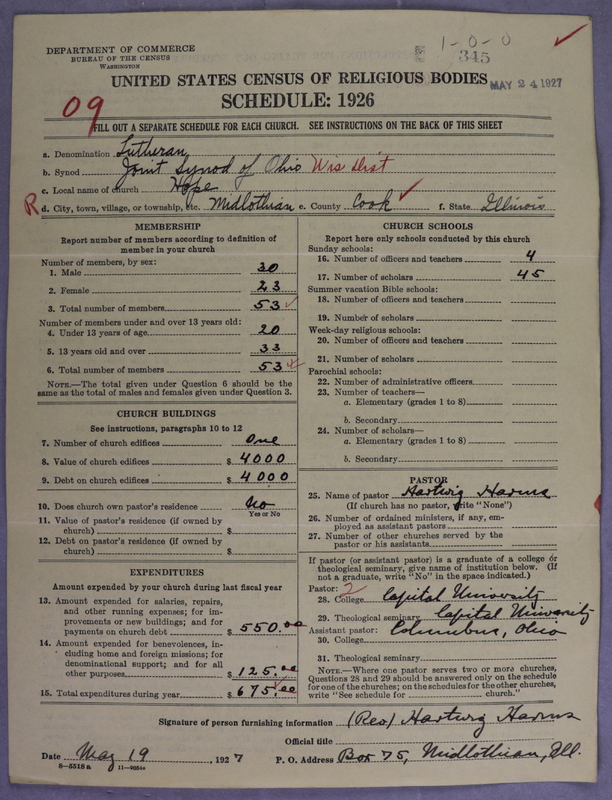 1-0-0
345
DEPARTMENT OF COMMERCE
BUREAU OF THE CENSUS
WASHINGTON
UNITED STATES CENSUS OF RELIGIOUS BODIES
MAY 24 1927
SCHEDULE: 1926
09
FILL OUT A SEPARATE SCHEDULE FOR EACH CHURCH. SEE INSTRUCTIONS ON THE BACK OF THIS SHEET
a. Denomination Lutheran
b. Synod Joint Synod of Ohio Wis Dist
c. Local name of church Hope
R d. City, town, village, or township, etc. Midlothian e. County Cook f. State Illinois
MEMBERSHIP
Report number of members according to definition of
member in your church
Number of members, by sex:
1. Male 30
2. Female 23
3. Total number of members 53
Number of members under and over 13 years old:
4. Under 13 years of age 20
5. 13 years old and over 33
6. Total number of members 53
NOTE.—The total given under Question 6 should be
same as the total of males and females given under Question 3.
CHURCH BUILDINGS
See instructions, paragraphs 10 to 12
7. Number of church edifices One
8. Value of church edifices $ 4000
9. Debt on church edifices $ 4000
10. Does church own pastor's residence No
Yes or No
11. Value of pastor's residence (if owned by
church) $
12. Debt on pastor's residence (if owned by
church) $
EXPENDITURES
Amount expended by your church during last fiscal year
13. Amount expended for salaries, repairs,
and other running expenses; for im-
provements or new buildings; and for
payments on church debt $ 550.00
14. Amount expended for benevolences, in-
cluding home and foreign missions; for
denominational support; and for all
other purposes $ 125.00
15. Total expenditures during year $ 675.00
CHURCH SCHOOLS
Report here only schools conducted by this church
Sunday schools:
16. Number of officers and teachers 4
17. Number of scholars 45
Summer vacation Bible schools:
18. Number of officers and teachers
19. Number of scholars
Week-day religious schools:
20. Number of officers and teachers
21. Number of scholars
Parochial schools:
22. Number of administrative officers
23. Number of teachers—
a. Elementary (grades 1 to 8)
b. Secondary
24. Number of scholars—
a. Elementary (grades 1 to 8)
b. Secondary
PASTOR
25. Name of pastor Hartwig Harms
(If church has no pastor, write "None")
26. Number of ordained ministers, if any, em-
ployed as assistant pastors
27. Number of other churches served by the
pastor or his assistants
If pastor (or assistant pastor) is a graduate of a college or
theological seminary, give name of institution below. (If
not a graduate, write "No" in the space indicated.)
Pastor: 2
28. College Capital University
29. Theological seminary Capital University
Assistant pastor: Columbus, Ohio
30. College
31. Theological seminary
NOTE.—Where one pastor serves two or more churches,
Questions 28 and 29 should be answered only on the schedule
for one of the churches; on the schedules for the other churches,
write "See schedule for church."
Signature of person furnishing information (Rev) Hartwig Harms
Official title
Date May 19, 1927 P. O. Address Box 75, Midlothian, Ill.
8—5518a 11—9054a